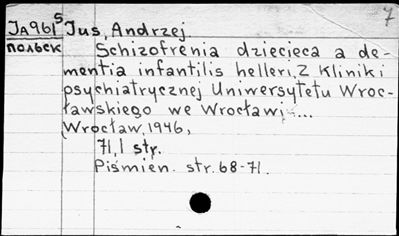 7
JA961 5 Jus, Andrzej
польск Schizofrenia dziecieca a de-
mentia infantilis helleri, Z Kliniki
psychiatrycznej Uniwersytetu Wroc-
ławskiego we Wrocławi ...
Wrocław, 1946,
71,1 str.
Piśmien. str. 68-71.